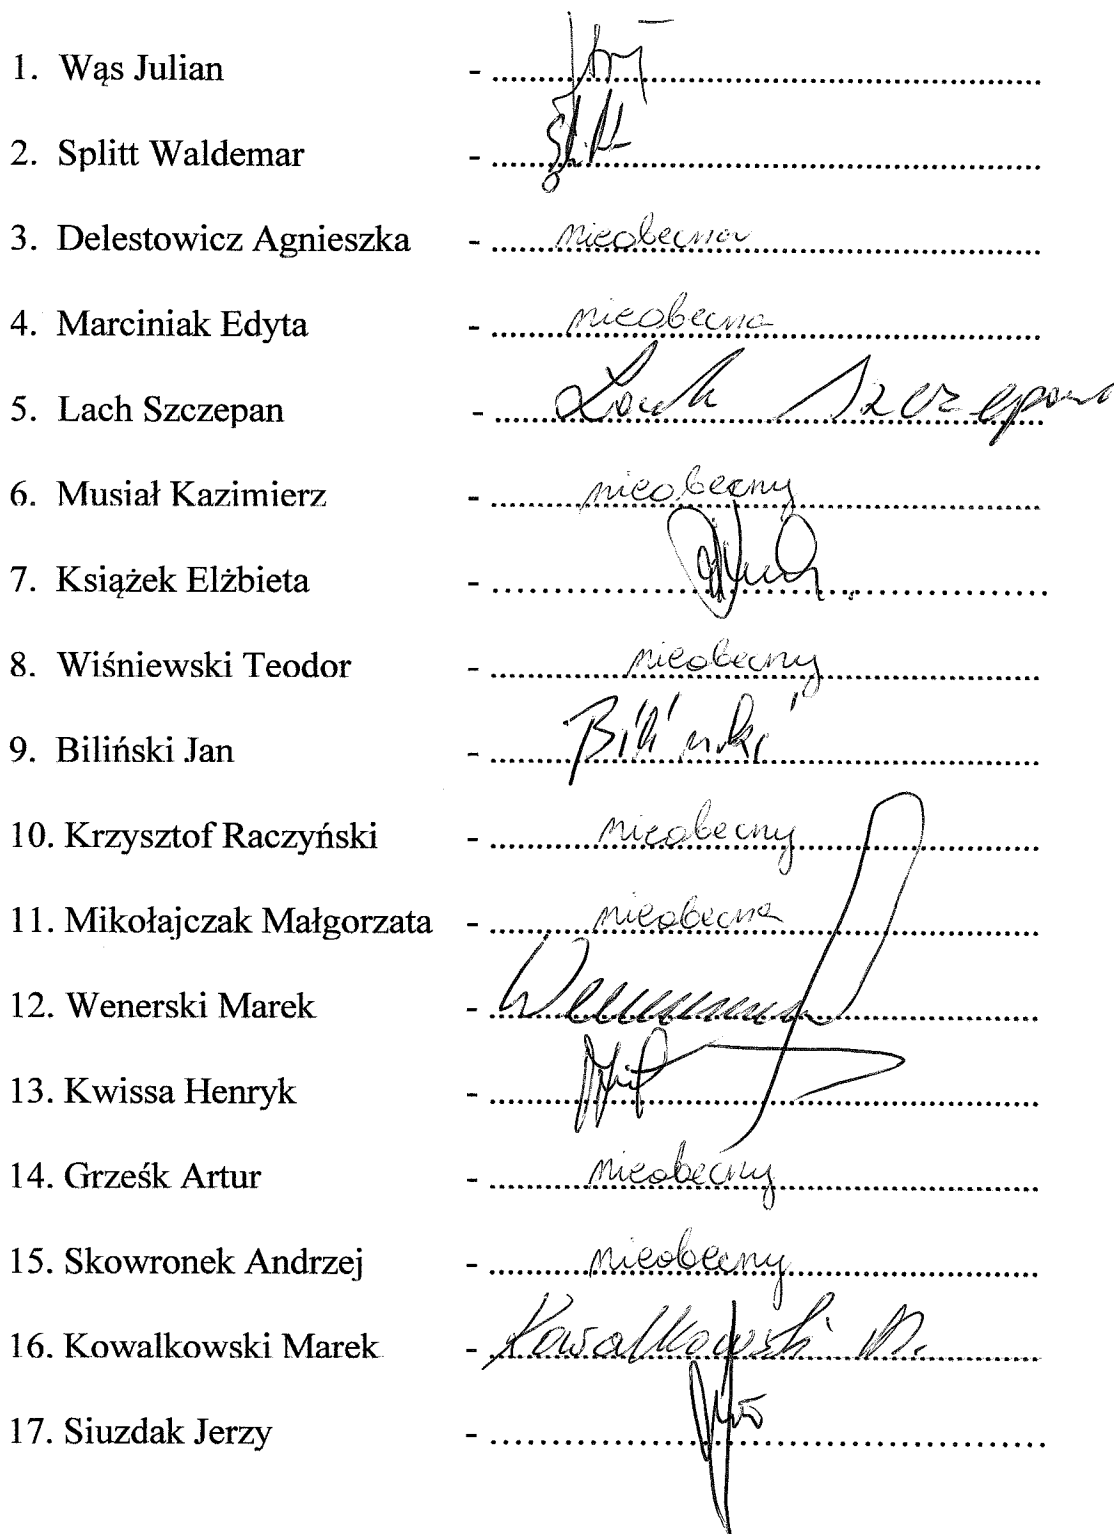 1. Wąs Julian - ..........
2. Splitt Waldemar - .......... Splitt
3. Delestowicz Agnieszka - .......... nieobecna
4. Marciniak Edyta - .......... nieobecna
5. Lach Szczepan - .......... Lach Szczepan
6. Musiał Kazimierz - .......... nieobecny
7. Książek Elżbieta - ..........
8. Wiśniewski Teodor - .......... nieobecny
9. Biliński Jan - .......... Biliński
10. Krzysztof Raczyński - .......... nieobecny
11. Mikołajczak Małgorzata - .......... nieobecna
12. Wenerski Marek - ..........
13. Kwissa Henryk - ..........
14. Grześk Artur - .......... nieobecny
15. Skowronek Andrzej - .......... nieobecny
16. Kowalkowski Marek - .......... Kowalkowski M.
17. Siuzdak Jerzy - ..........